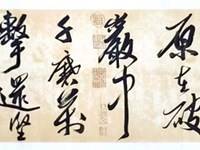 原在破
巖中
千磨萬
擊還堅